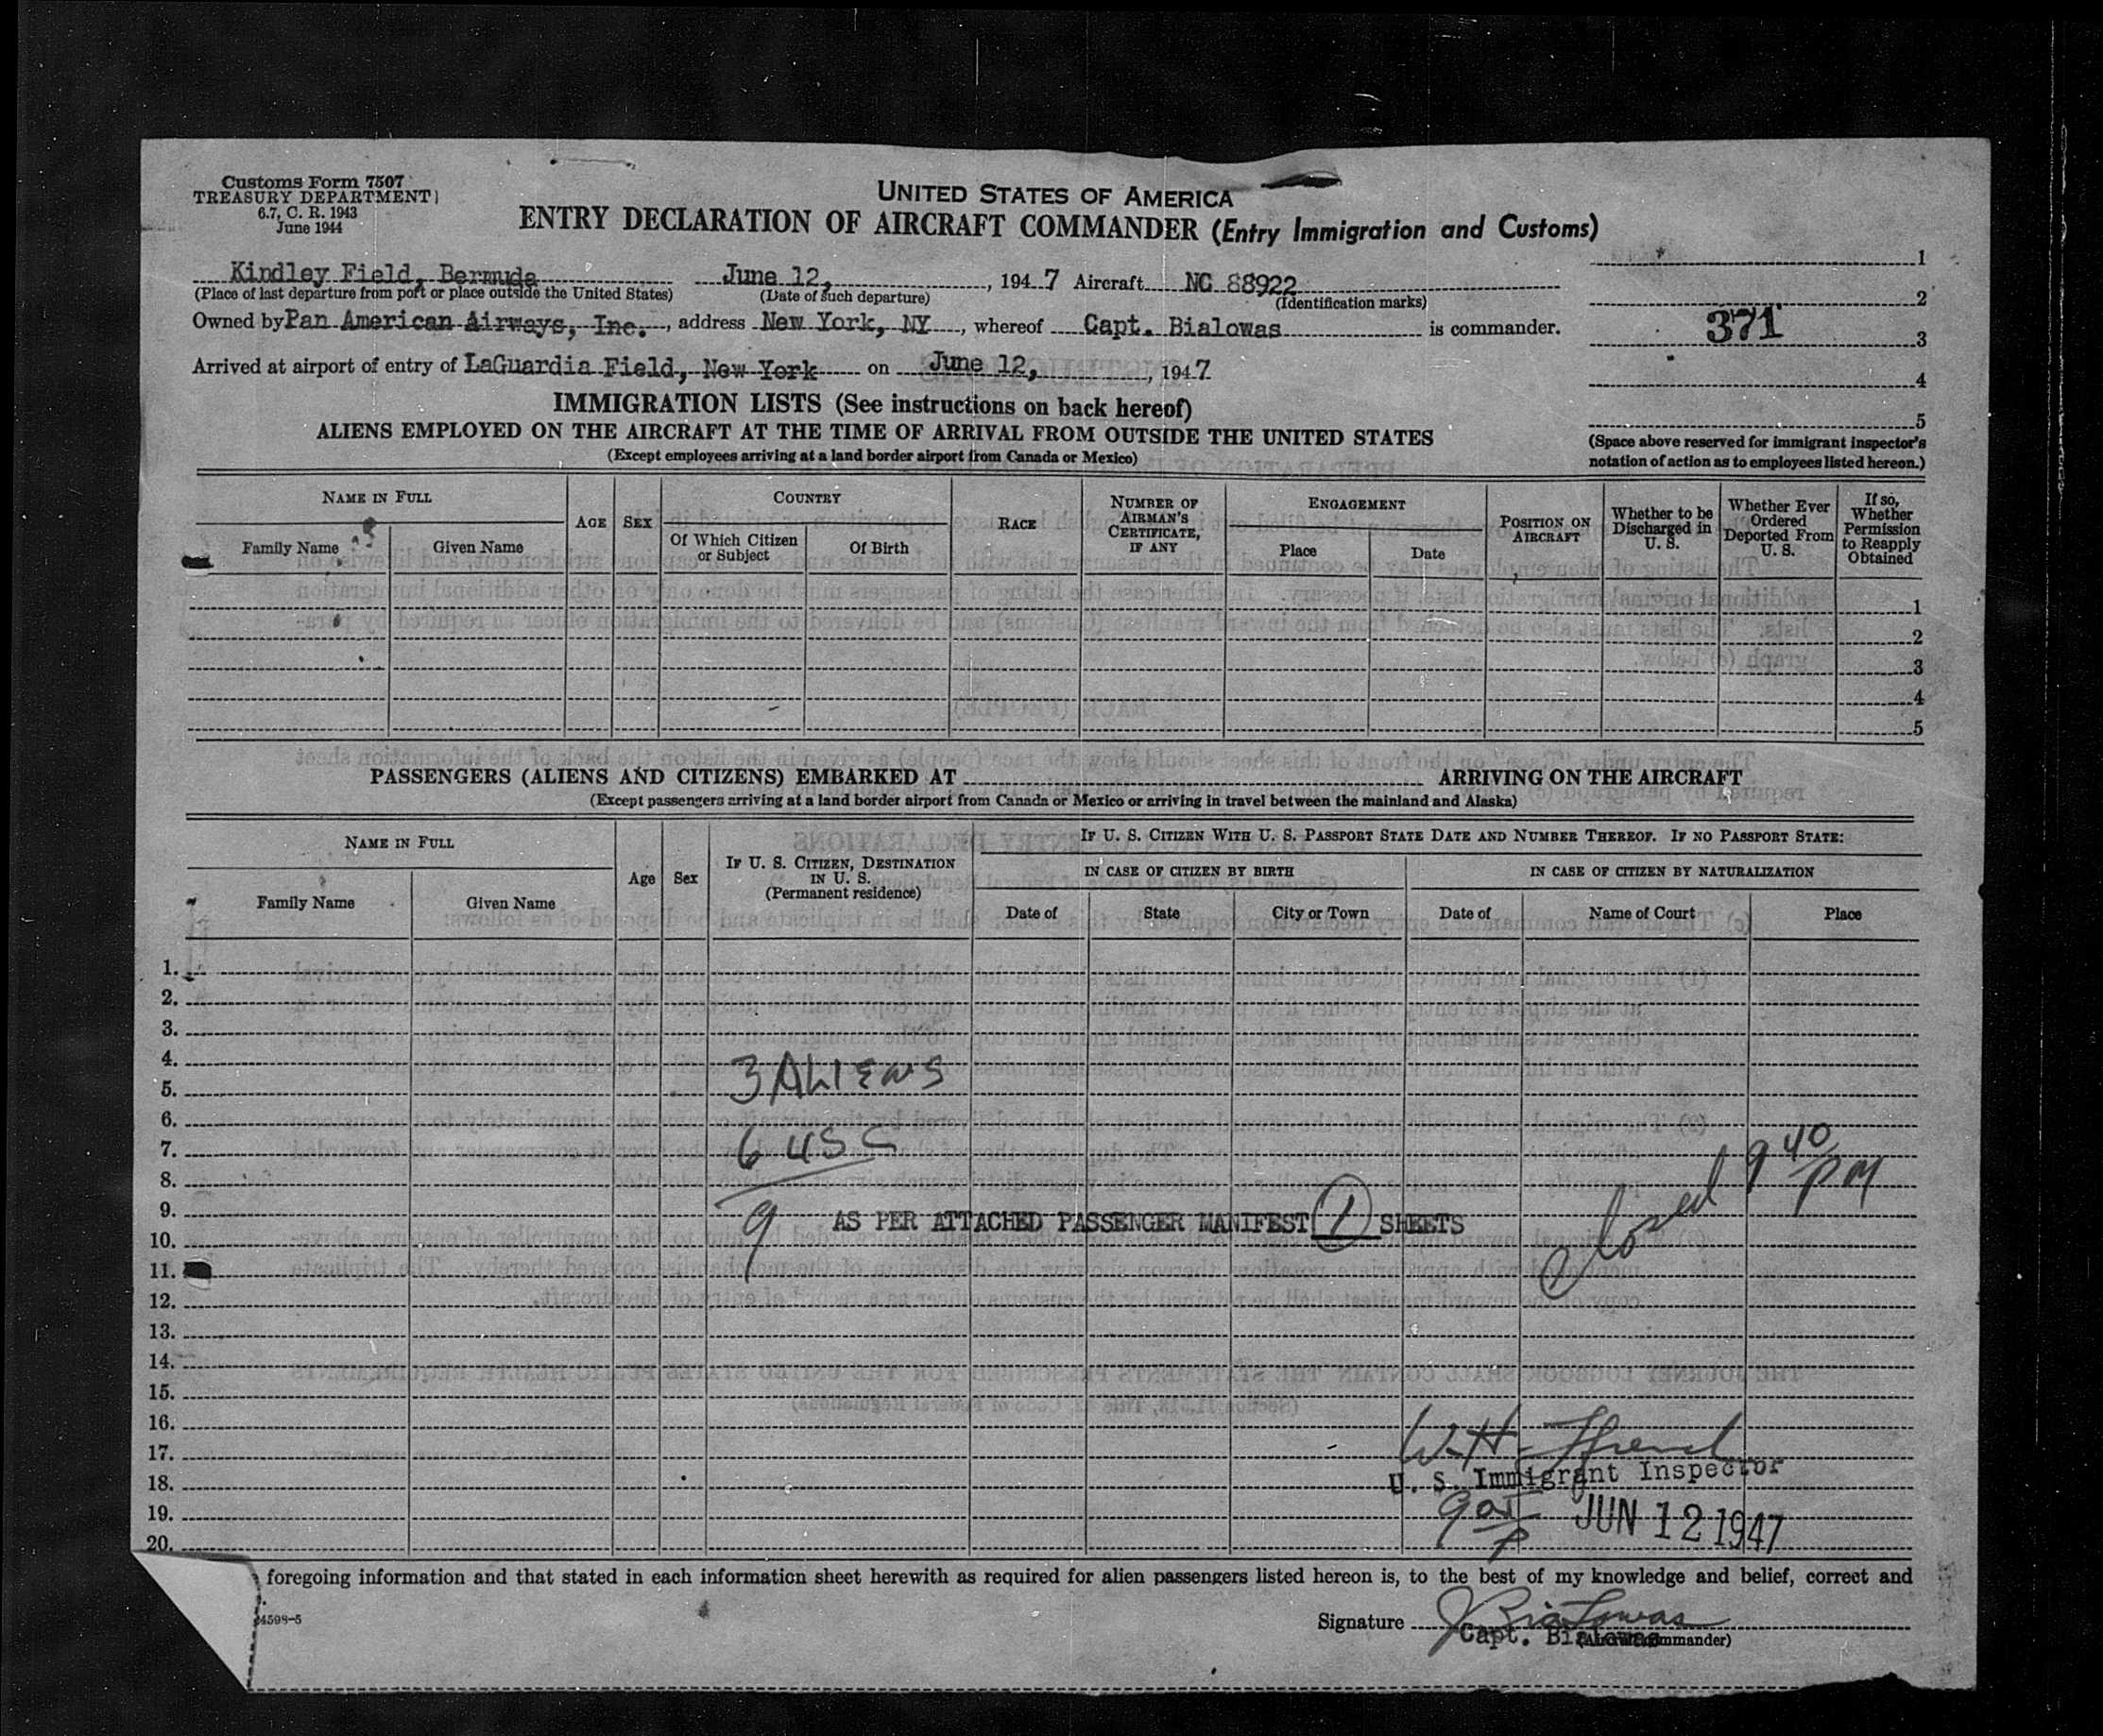 Customs Form 7507
TREASURY DEPARTMENT
6.7, C. R. 1943
June 1944
UNITED STATES OF AMERICA
ENTRY DECLARATION OF AIRCRAFT COMMANDER (Entry Immigration and Customs)
Kindley Field, Bermuda June 12, , 194 7 Aircraft NC 88922
(Place of last departure from port or place outside the United States) (Date of such departure) (Identification marks)
Owned by Pan American Airways, Inc. , address New York, NY , whereof Capt. Bialowas is commander.
Arrived at airport of entry of LaGuardia Field, New York on June 12, , 194 7
1
2
371
3
4
5
(Space above reserved for immigrant inspector's
notation of action as to employees listed hereon.)
IMMIGRATION LISTS (See instructions on back hereof)
ALIENS EMPLOYED ON THE AIRCRAFT AT THE TIME OF ARRIVAL FROM OUTSIDE THE UNITED STATES
(Except employees arriving at a land border airport from Canada or Mexico)
NAME IN FULL
Family Name
Given Name
AGE
SEX
COUNTRY
Of Which Citizen
or Subject
Of Birth
RACE
NUMBER OF
AIRMAN'S
CERTIFICATE,
IF ANY
ENGAGEMENT
Place
Date
POSITION ON
AIRCRAFT
Whether to be
Discharged in
U. S.
Whether Ever
Ordered
Deported From
U. S.
If so,
Whether
Permission
to Reapply
Obtained
1
2
3
4
5
PASSENGERS (ALIENS AND CITIZENS) EMBARKED AT ARRIVING ON THE AIRCRAFT
(Except passengers arriving at a land border airport from Canada or Mexico or arriving in travel between the mainland and Alaska)
NAME IN FULL
Family Name
Given Name
Age
Sex
IF U. S. CITIZEN, DESTINATION
IN U. S.
(Permanent residence)
IF U. S. CITIZEN WITH U. S. PASSPORT STATE DATE AND NUMBER THEREOF. IF NO PASSPORT STATE:
IN CASE OF CITIZEN BY BIRTH
IN CASE OF CITIZEN BY NATURALIZATION
Date of
State
City or Town
Date of
Name of Court
Place
1.
2.
3.
4.
3 ALIENS
5.
6.
7.
6 USC
8.
9.
9 AS PER ATTACHED PASSENGER MANIFEST 1 SHEETS
closed 9 40 PM
10.
11.
12.
13.
14.
15.
16.
17.
W. H.
U. S. Immigrant Inspector
18.
19.
JUN 12 1947
20.
foregoing information and that stated in each information sheet herewith as required for alien passengers listed hereon is, to the best of my knowledge and belief, correct and
Signature J Bialowas
Capt. Bialowas